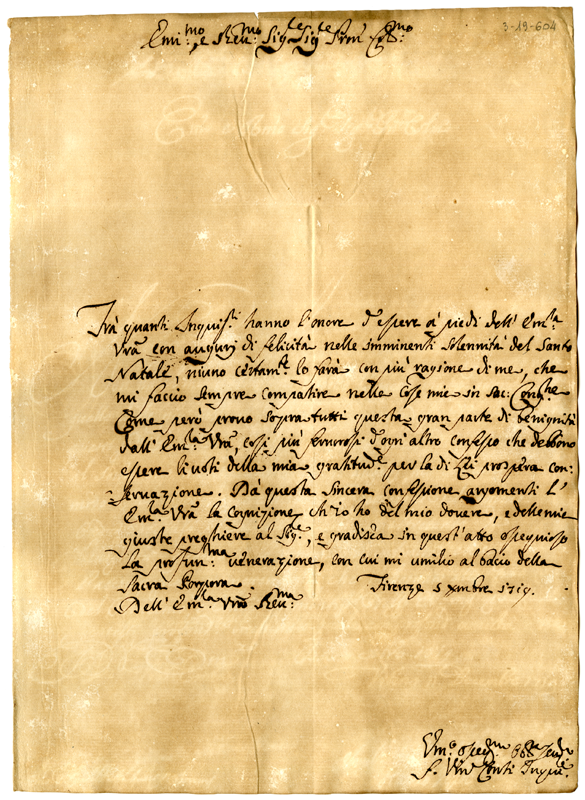 3-19-604
Emi:mo e Rev:mo Sigle Sigle Pron Col:mo
Frà quanti Inquisri hanno l'onore d'essere à piedi dell'Emza
Vra con auguri di felicità nelle imminenti solennità del Santo
Natale, niuno certamte lo farà con più ragione di me, che
mi faccio sempre compatire nelle cose mie in sac: Congne
Come però provo sopra tutti questa gran parte di benignità
dall'Emza Vra, così più fervorosi d'ogni altro confesso che debbono
essere li voti della mia gratitude per la di Lei prospera con-
servazione. Dà questa sincera confessione argomenti l'
Emza Vra la cognizione ch'io ho del mio dovere, e delle mie
giuste preghiere al Sige, e gradisca in quest'atto ossequioso
la profunma venerazione, con cui mi umilio al bacio della
sacra Porpora.
Firenze 5 Xmbre 1719.
Dell'Emza Vra Rev:ma
Um:o osseqmo
f. Vinc Conti Inqre